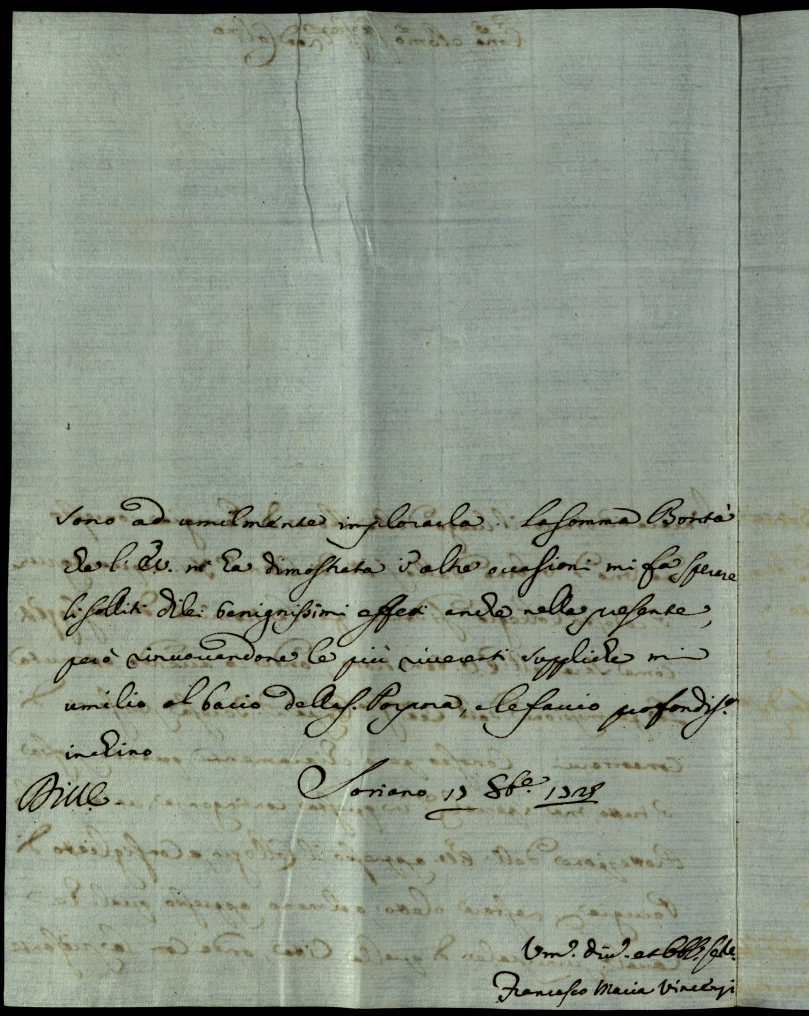 sono ad umilmente implorarla. La somma Bontà
che l'E.V. mi ha dimostrata i altre occasioni mi fa sperare
li soliti di lei benignissimi effetti anche nella presente,
però rinuovandone le più riverenti suppliche mi
umilio al bacio della S. Porpora, e le faccio profondis.o
inchino
Soriano 17 8bre. 1728
Um.o div.o et obb.
Francesco Maria Vincenzi